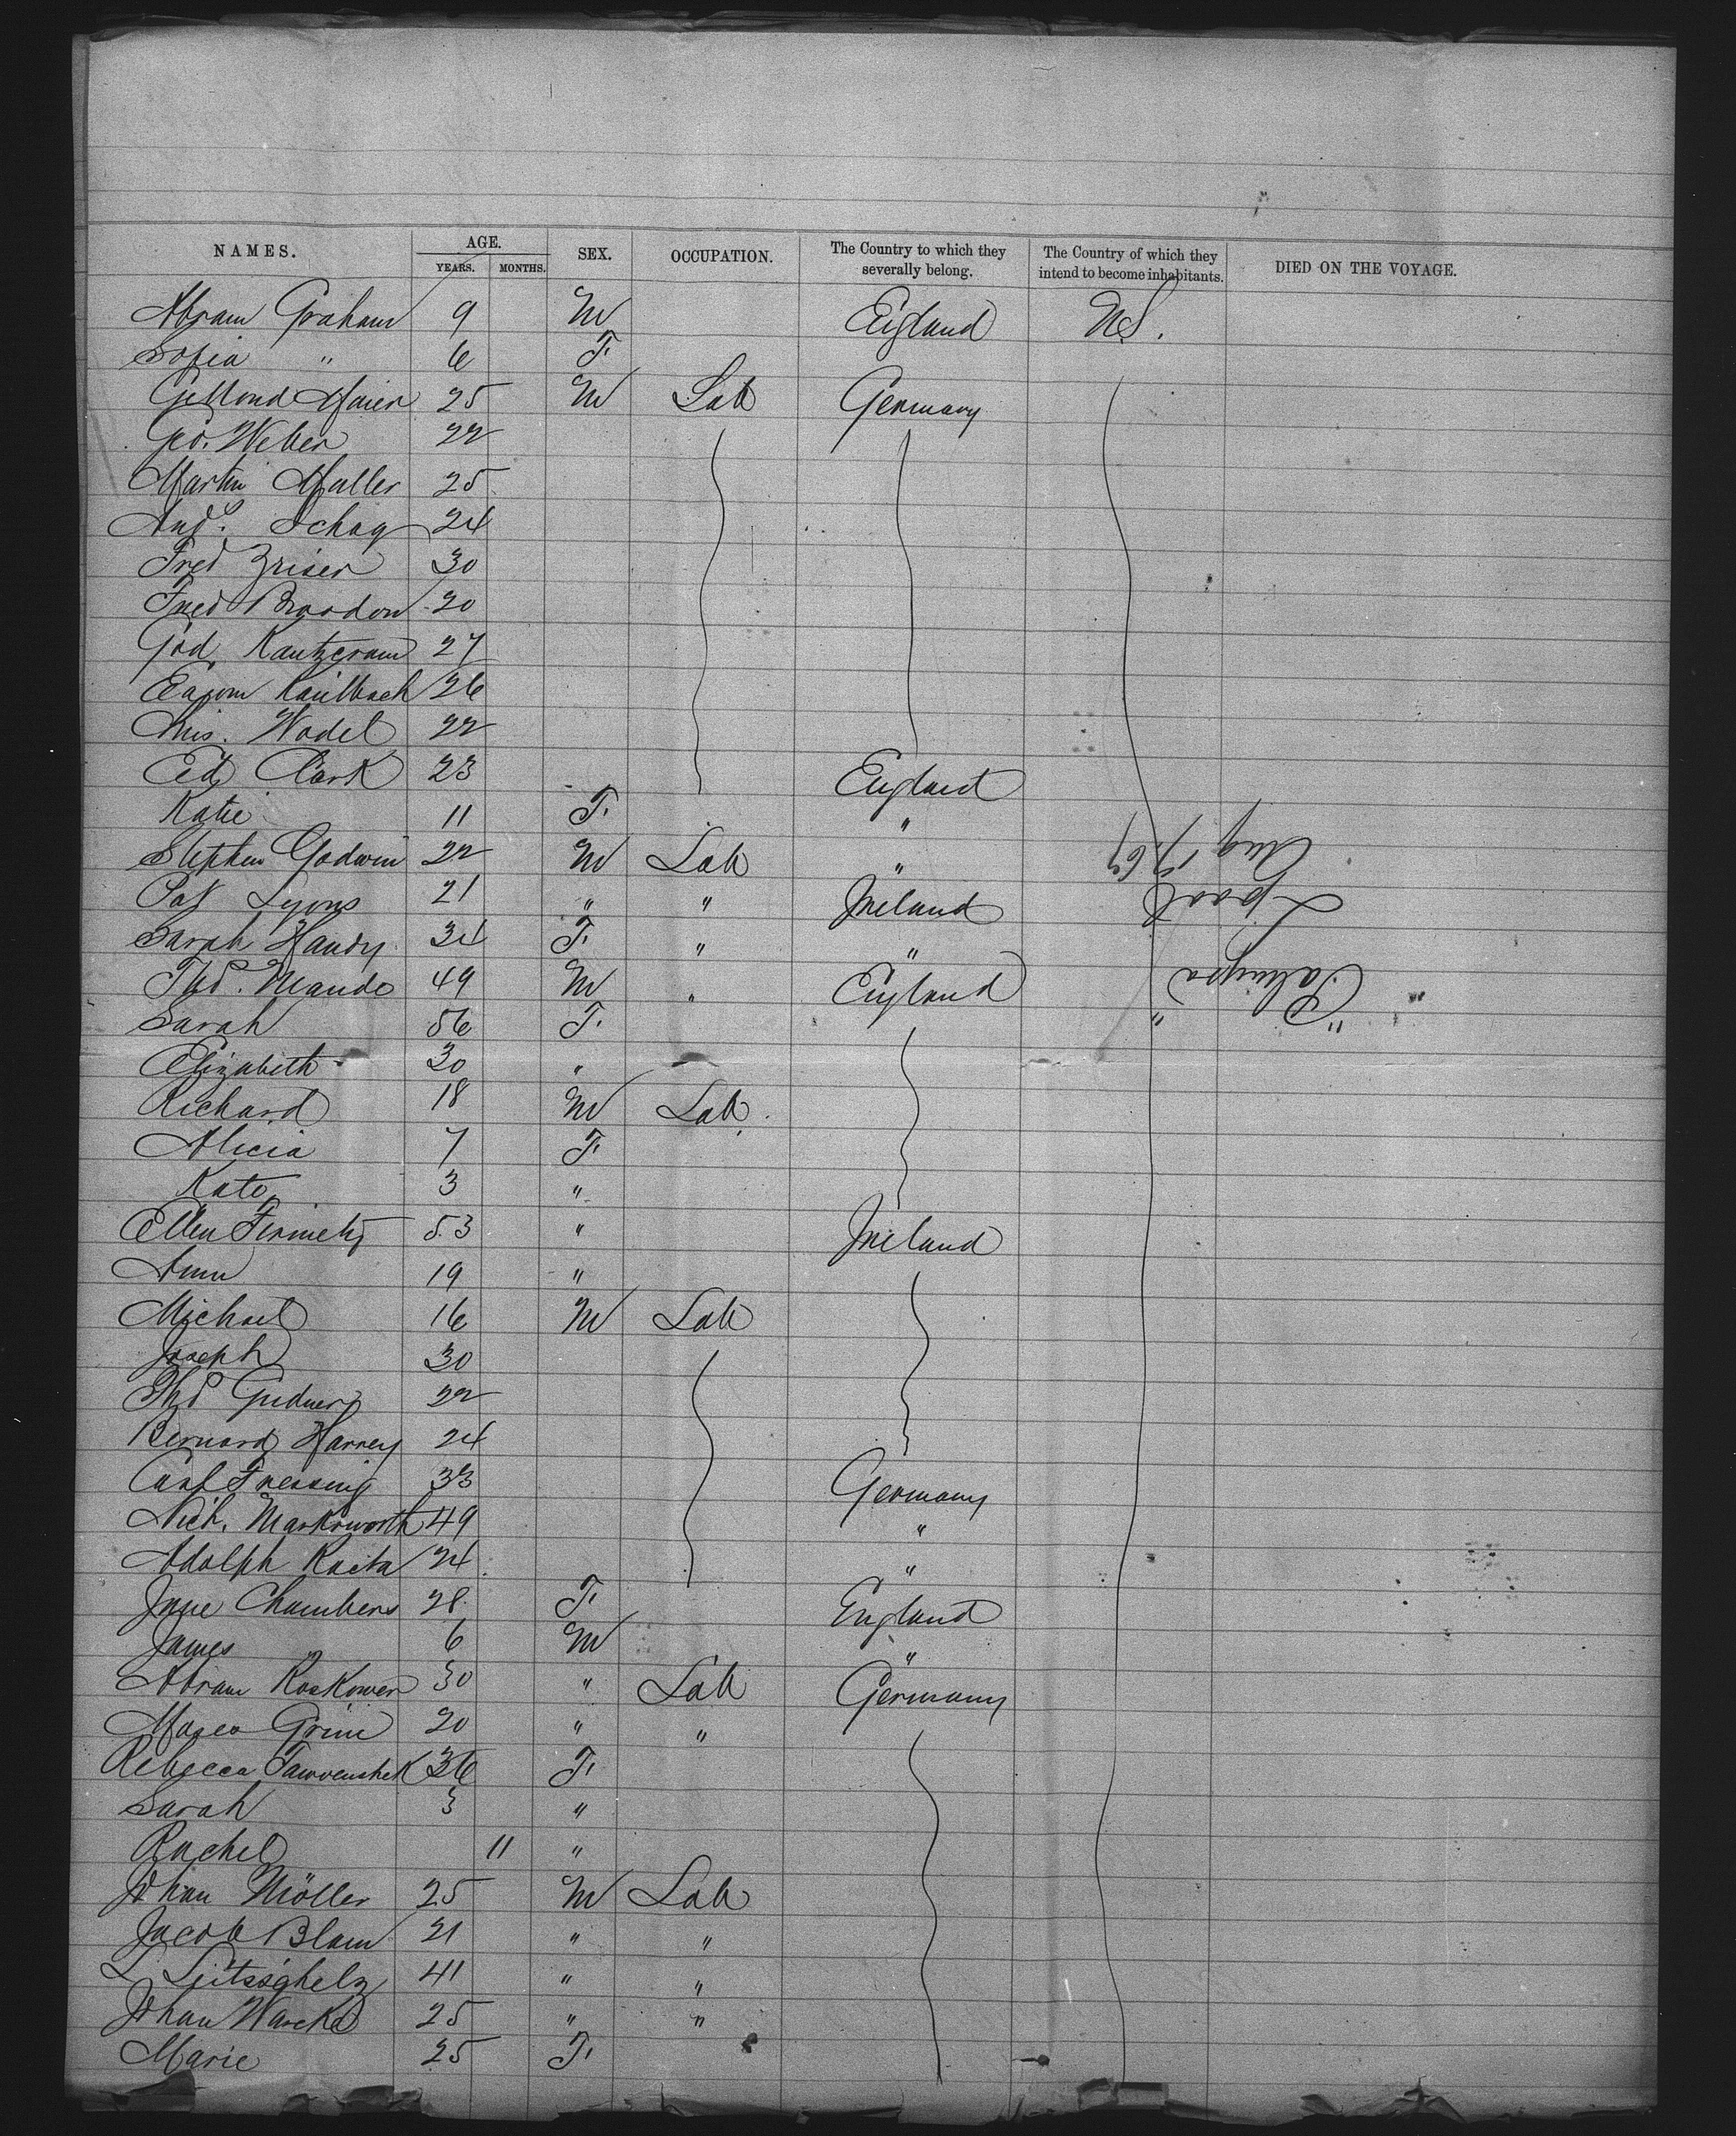 NAMES. AGE. SEX. OCCUPATION. The Country to which they severally belong. The Country of which they intend to become inhabitants. DIED ON THE VOYAGE.
YEARS. MONTHS.
Abram Graham 9 M England U.S.
Sofia " 6 F.
Maier 25 M Lab Germany
Geo. Weber 22
Martin Muller 25
Schag 24
Fred Zriser 30
Fred 20
God. 27
Kaulbach 26
Chris. Wadel 22
Ed Clark 23 England
Katie 11 F. "
Stephen Godwin 22 M Lab "
Pat Lyons 21 " " Ireland
Sarah Handy 34 F. " "
Thos. Maude 49 M " England
Sarah 56 F.
Elizabeth 30 "
Richard 18 M Lab.
Alicia 7 F.
Kate 3 "
Ellen 53 " Ireland
Ann 19 "
Michael 16 M Lab
Joseph 30
Thos 22
Bernard Harvey 24
Carl Fressing 33 Germany
Nich. Marksworth 49 "
Adolph 24 "
Jane Chambers 28 F. England
James 6 M "
Abram Roskower 30 " Lab Germany
Grim 20 " "
Rebecca 36 F.
Sarah 3 "
Rachel 11 "
Johan Möller 25 M Lab
Jacob Blam 21 " "
L 41 " "
Johan 25 " "
Marie 25 F.
"Palmyra"
Lpool
Aug 17. 67